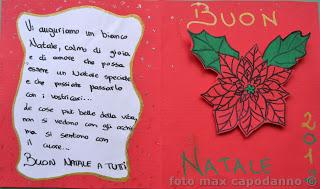 Vi auguriamo un bianco
Natale, colmo di gioia
e di amore che possa
essere un Natale speciale
e che possiate passarlo
con i vostri cari...
le cose più belle della vita,
non si vedono con gli occhi
ma si sentono con
il cuore...
BUON NATALE A TUTTI
BUON
NATALE
201
foto max capodanno©